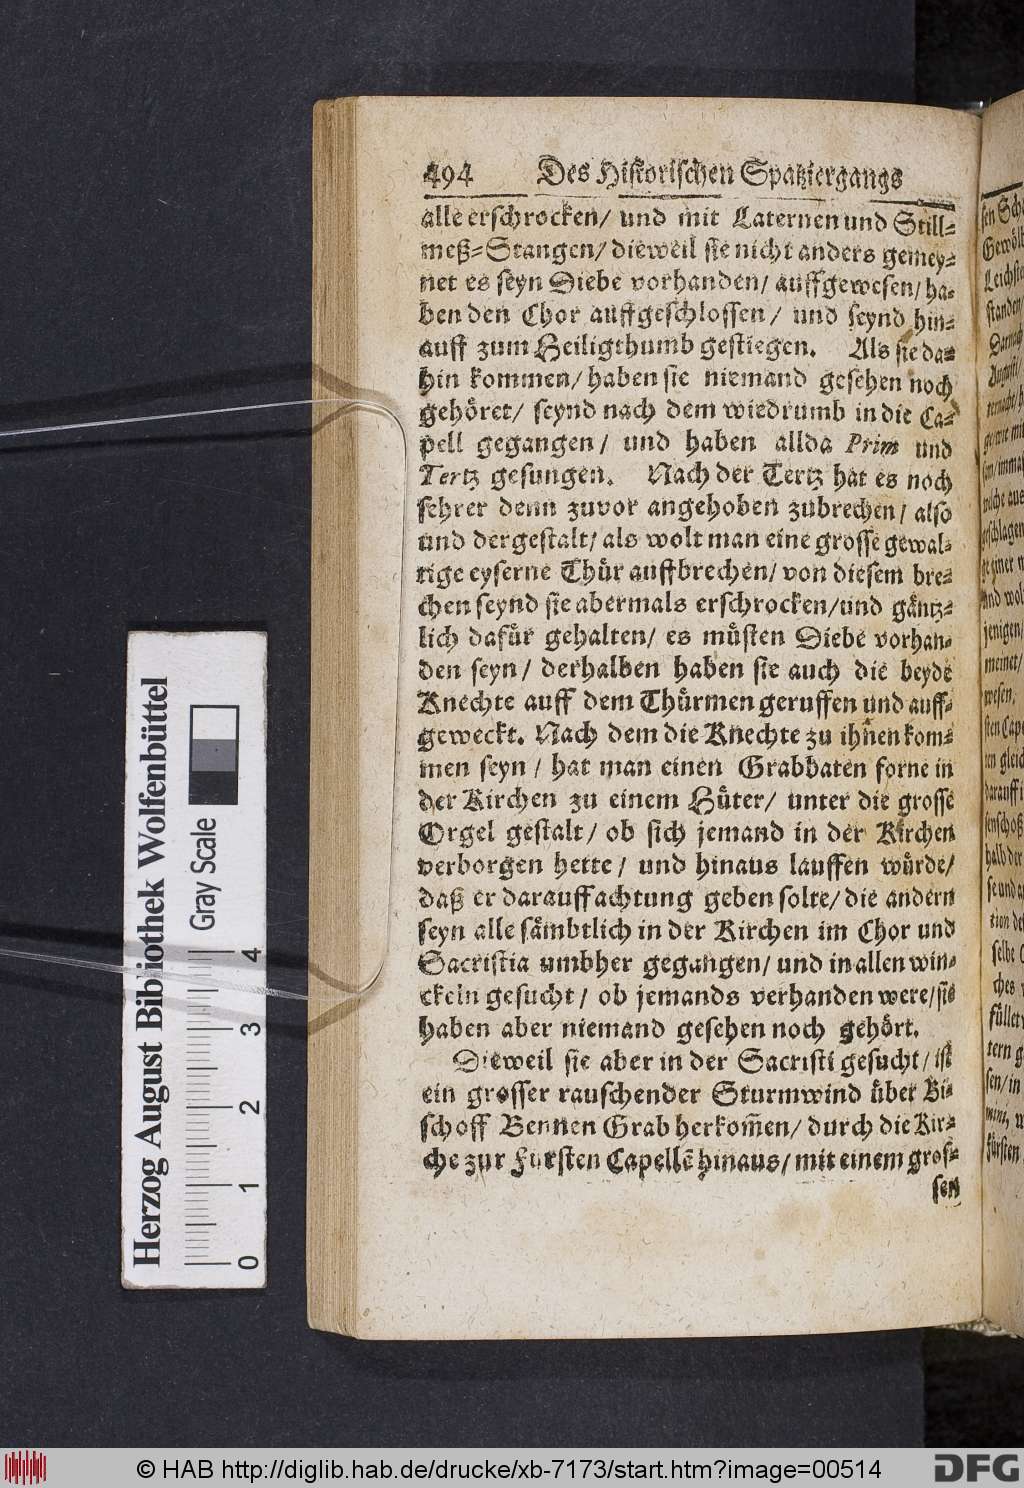 494 Des Historischen Spatziergangs
alle erschrocken/ und mit Laternen und Still-
meß-Stangen/ dieweil sie nicht anders gemey-
net es seyn Diebe vorhanden/ auffgewesen/ ha-
ben den Chor auffgeschlossen/ und seynd hin-
auff zum Heiligthumb gestiegen. Als sie da-
hin kommen/ haben sie niemand gesehen noch
gehöret/ seynd nach dem wiedrumb in die Ca-
pell gegangen/ und haben allda Prim und
Tertz gesungen. Nach der Tertz hat es noch
sehrer denn zuvor angehoben zubrechen/ also
und dergestalt/ als wolt man eine grosse gewal-
tige eyserne Thür auffbrechen/ von diesem bre-
chen seynd sie abermals erschrocken/und gäntz-
lich dafür gehalten/ es müsten Diebe vorhan-
den seyn/ derhalben haben sie auch die beyde
Knechte auff dem Thürmen geruffen und auff-
geweckt. Nach dem die Knechte zu ihnen kom-
men seyn/ hat man einen Grabbaten forne in
der Kirchen zu einem Hüter/ unter die grosse
Orgel gestalt/ ob sich jemand in der Kirchen
verborgen hette/ und hinaus lauffen würde/
daß er darauff achtung geben solte/ die andern
seyn alle sämbtlich in der Kirchen im Chor und
Sacristia umbher gegangen/ und in allen win-
ckeln gesucht/ ob jemands verhanden were/sie
haben aber niemand gesehen noch gehört.
Dieweil sie aber in der Sacristi gesucht/ ist
ein grosser rauschender Sturmwind über Bi-
schoff Bennen Grab herkom̃en/ durch die Kir-
che zur Fürsten Capellē hinaus/ mit einem gros-
sen
Gewöl
Leichste
standen/
Darnach
Augusti/
geschlagen
und wol
jenigen/
meinet/
wesen.
sten Cape
darauff i
halb der
se und a
tion de
selbe C
ches
füllet
tern g
sen/ in
mini, u
fürsten
Herzog August Bibliothek Wolfenbüttel
Gray Scale
0 1 2 3 4
© HAB http://diglib.hab.de/drucke/xb-7173/start.htm?image=00514
DFG